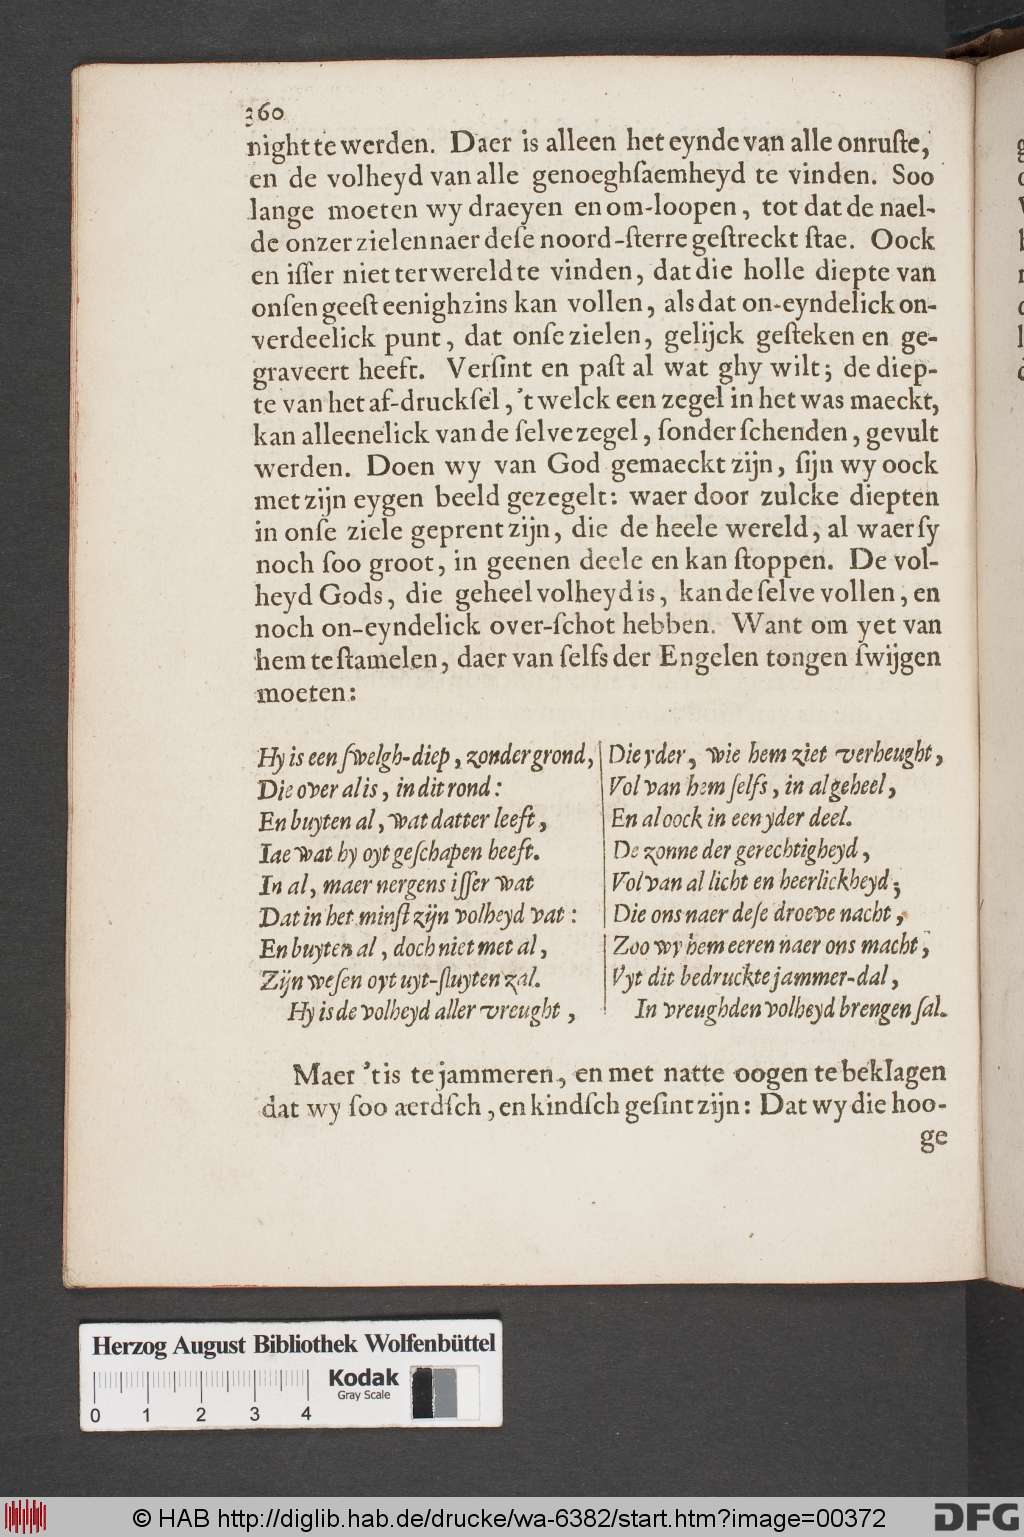 360
night te werden. Daer is alleen het eynde van alle onruſte,
en de volheyd van alle genoeghſaemheyd te vinden. Soo
lange moeten wy draeyen en om-loopen, tot dat de nael-
de onzer zielen naer deſe noord-ſterre geſtreckt ſtae. Oock
en iſſer niet ter wereld te vinden, dat die holle diepte van
onſen geeſt eenighzins kan vollen, als dat on-eyndelick on-
verdeelick punt, dat onſe zielen, gelijck geſteken en ge-
graveert heeft. Verſint en paſt al wat ghy wilt; de diep-
te van het af-druckſel, 't welck een zegel in het was maeckt,
kan alleenelick van de ſelve zegel, ſonder ſchenden, gevult
werden. Doen wy van God gemaeckt zijn, ſijn wy oock
met zijn eygen beeld gezegelt: waer door zulcke diepten
in onſe ziele geprent zijn, die de heele wereld, al waer ſy
noch ſoo groot, in geenen deele en kan ſtoppen. De vol-
heyd Gods, die geheel volheyd is, kan de ſelve vollen, en
noch on-eyndelick over-ſchot hebben. Want om yet van
hem te ſtamelen, daer van ſelfs der Engelen tongen ſwijgen
moeten:
Hy is een ſwelgh-diep, zonder grond,
Die over al is, in dit rond:
En buyten al, wat datter leeft,
Iae wat hy oyt geſchapen heeft.
In al, maer nergens iſſer wat
Dat in het minſt zijn volheyd vat:
En buyten al, doch niet met al,
Zijn weſen oyt uyt-ſluyten zal.
Hy is de volheyd aller vreught,
Die yder, wie hem ziet verheught,
Vol van hem ſelfs, in al geheel,
En al oock in een yder deel.
De zonne der gerechtigheyd,
Vol van al licht en heerlickheyd;
Die ons naer deſe droeve nacht,
Zoo wy hem eeren naer ons macht,
Vyt dit bedruckte jammer-dal,
In vreughden volheyd brengen ſal.
Maer 't is te jammeren, en met natte oogen te beklagen
dat wy ſoo aerdſch, en kindſch geſint zijn: Dat wy die hoo-
ge
Herzog August Bibliothek Wolfenbüttel
Kodak
Gray Scale
0 1 2 3 4
© HAB http://diglib.hab.de/drucke/wa-6382/start.htm?image=00372
DFG